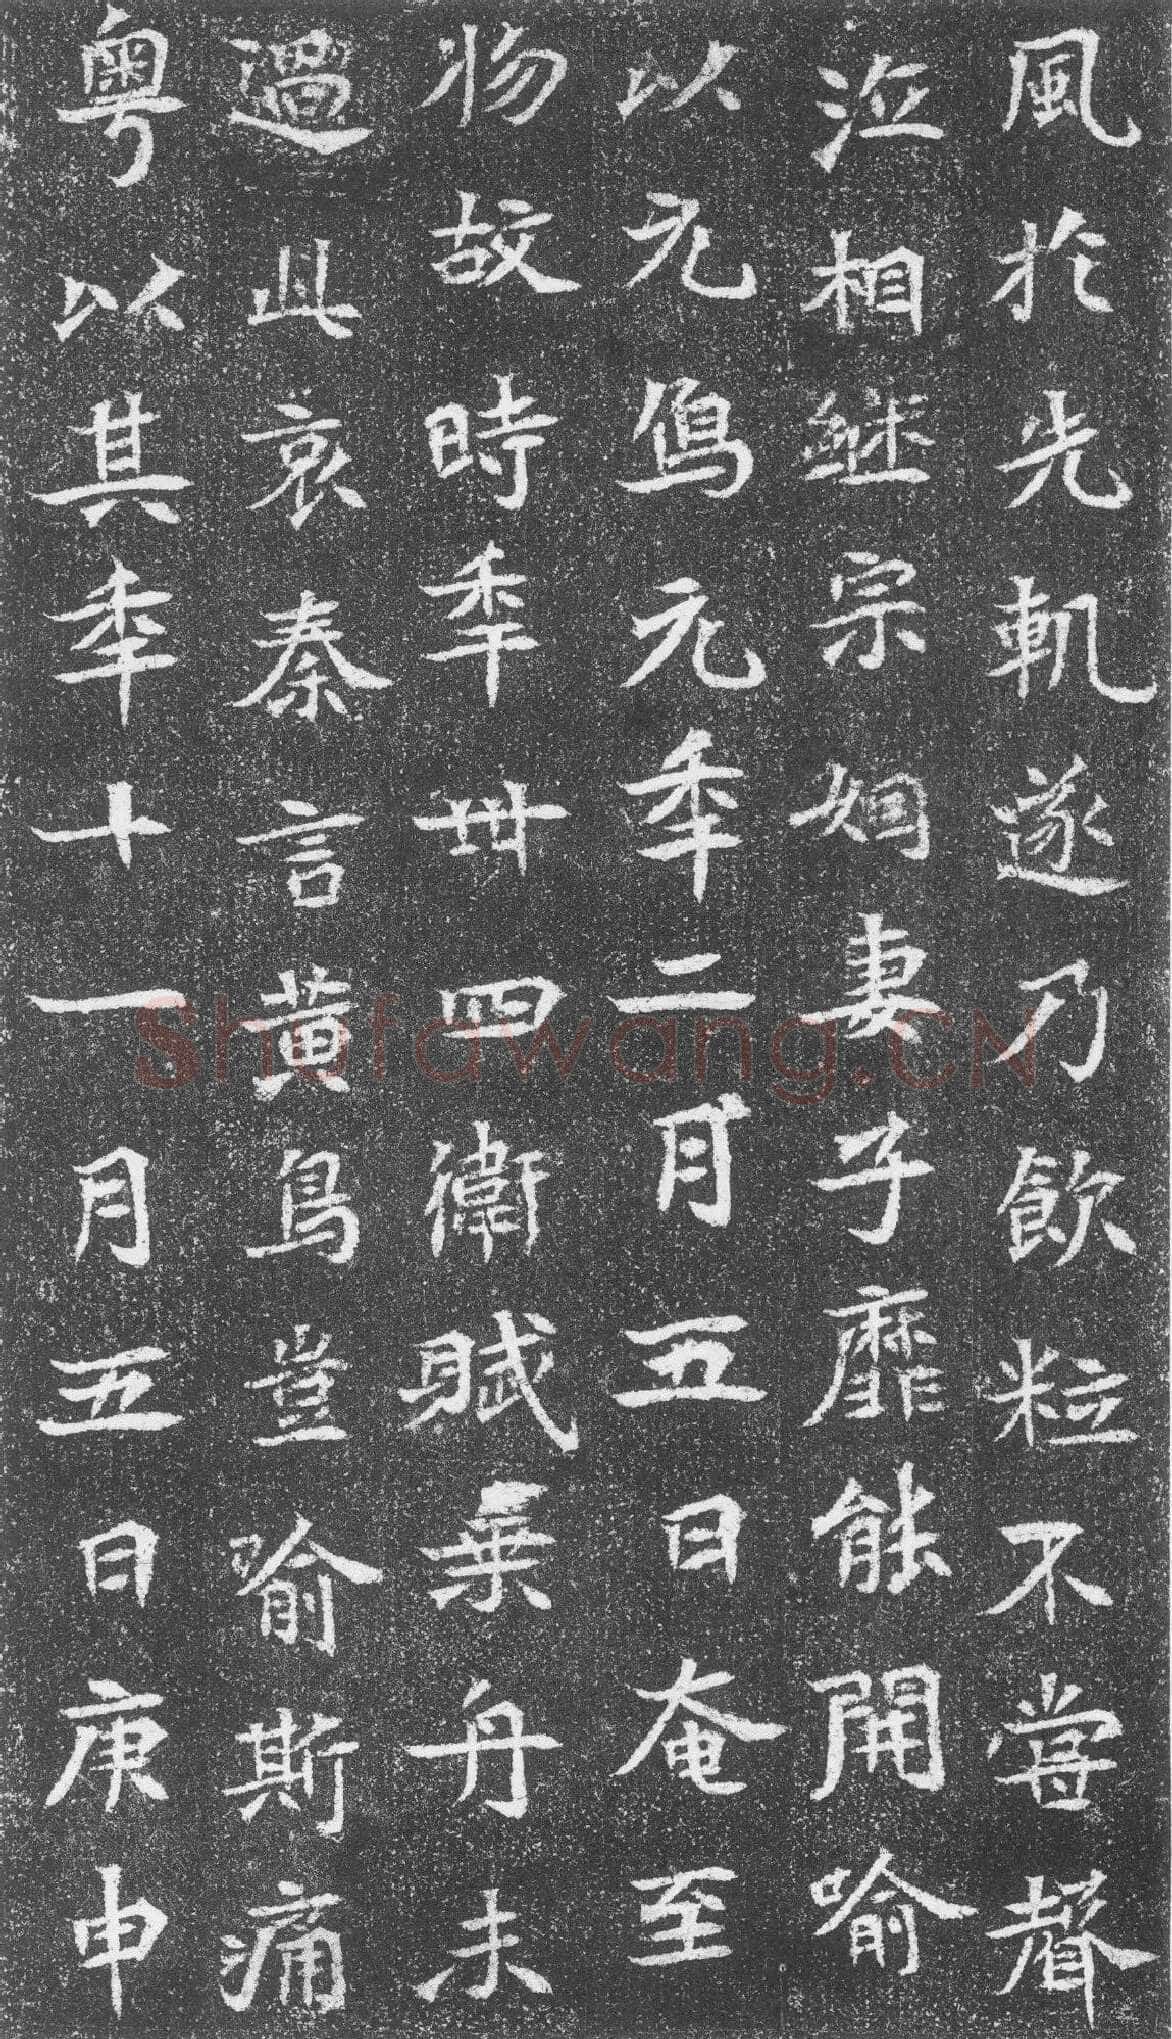 風於先軌遂乃飲粒不嘗聲
泣相繼宗姻妻子靡能開喻
以元偽元年二月五日奄至
物故時年卅四衛賦乗舟未
過此哀秦言黄鳥豈喻斯痛
粤以其年十一月五日庚申
Shufawang.CN